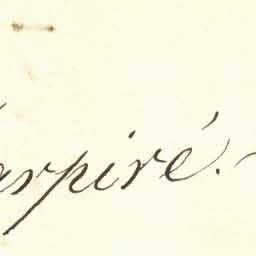 arpiré. -